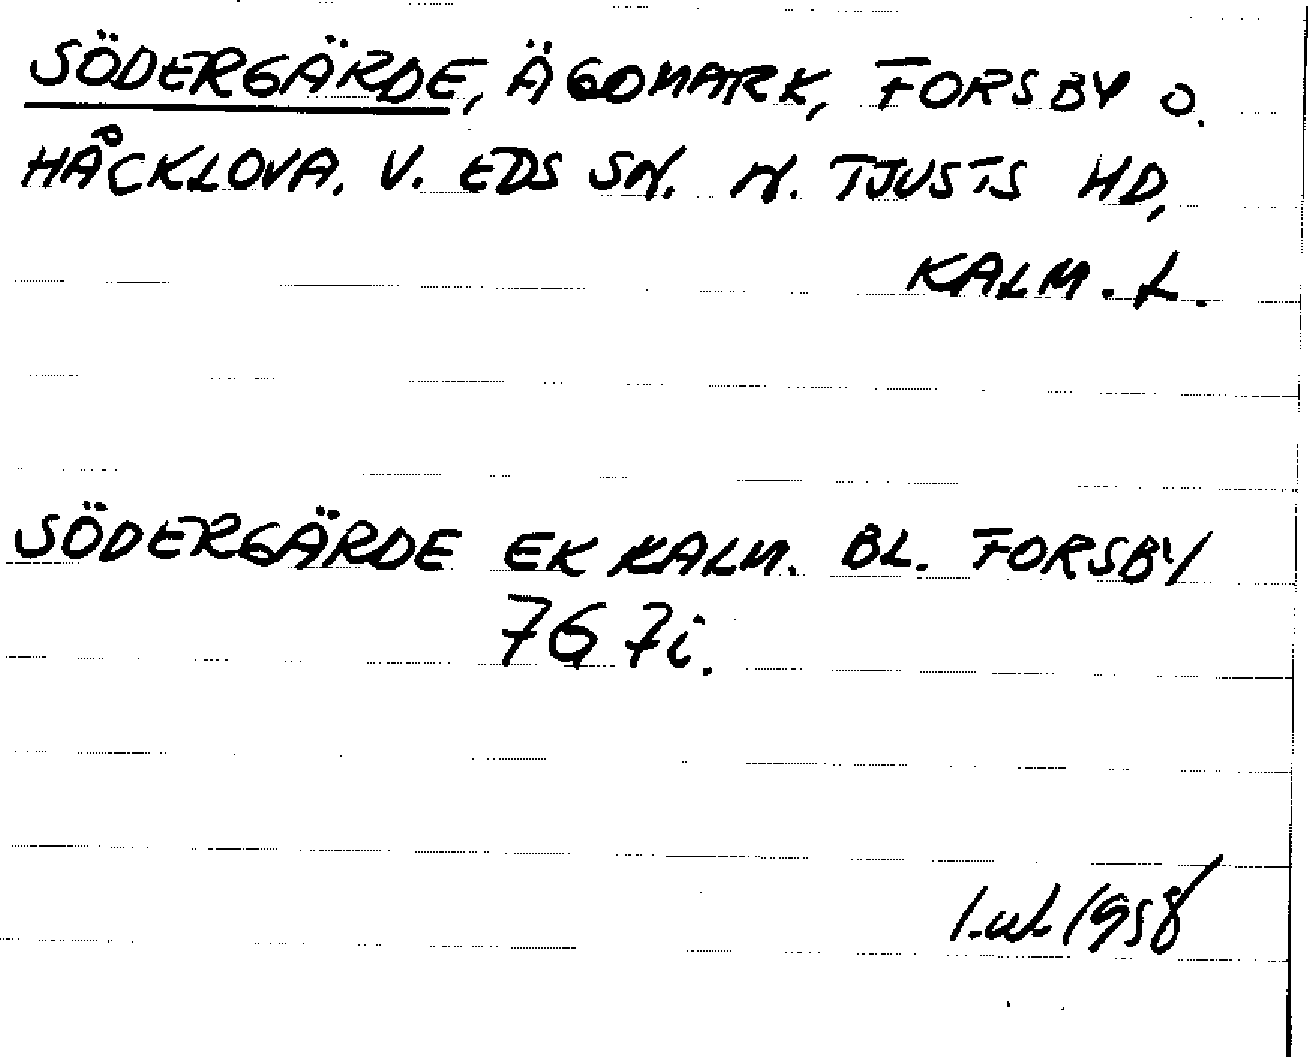 SÖDERGÄRDE, ÄGOMARK, FORSBY O.
HÅCKLOVA. V. EDS SN. N. TJUSTS HD,
KALM. L.
SÖDERGÄRDE EK KALM. BL. FORSBY
7G 7i.
1958